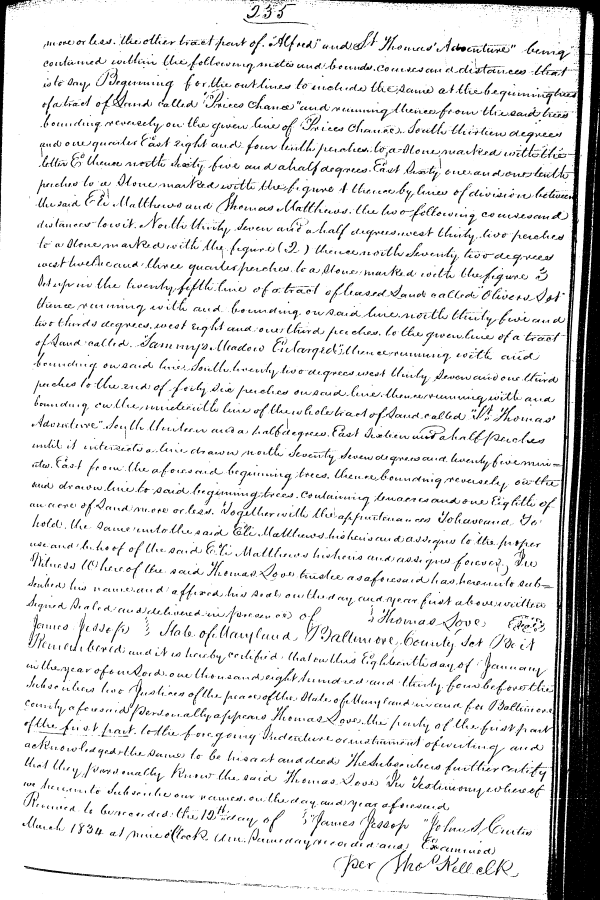 235
more or less. the other tract part of "Alfred" and St Thomas' Adventure" being
contained within the following metes and bounds. courses and distances that
is to say, Beginning for the out lines to include the same at the beginning trees
of a tract of Land called "Prices Chance" and running thence from the said trees
bounding reversely on the given line of Prices Chance. South thirteen degrees
and one quarter East eight and four tenth perches to a Stone marked with the
letter E thence north Sixty five and a half degrees. East Sixty one and one tenth
perches to a Stone marked with the figure 1 thence by lines of division between
the said Eli Matthews and Thomas Matthews. the two following courses and
distances to wit. North thirty Seven and a half degrees west thirty two perches
to a Stone marked with the figure (2.) thence north Seventy two degrees
west twelve and three quarter perches. to a Stone marked with the figure 3
Set up in the twenty fifth line of a tract of leased Land called "Olivers Lot"
thence running with and bounding on said line north thirty five and
two thirds degrees. west eight and one third perches. to the given line of a tract
of Land called. "Tammys Meadow Enlarged", thence running with and
bounding on said line South twenty two degrees west thirty Seven and one third
perches to the end of forty Six perches on said line. thence running with and
bounding on the nineteenth line of the whole tract of Land called "St Thomas'
Adventure" South thirteen and a half degrees. East Sixteen and a half perches
until it intersects a line drawn north Seventy Seven degrees and twenty five min=
utes. East from the aforesaid beginning trees. thence bounding reversely on the
said drawn line to said beginning trees. containing ten acres and one Eighth of
an acre of Land more or less. Together with the appurtenances To have and To
hold. the same unto the said Eli Matthews his heirs and assigns to the proper
use and behoof of the said Eli Matthews his heirs and assigns forever, In
Witness Whereof the said Thomas Love trustee as aforesaid has hereunto sub=
scribed his name and affixed his seal on the day and year first above written
Signed Sealed and delivered in presence of } Thomas Love (Seal)
James Jessop } State of Maryland, Baltimore, County Sct Be it
Remembered and it is hereby certified that on this Eighteenth day of January
in the year of our Lord. one thousand eight hundred and thirty four before the
Subscribers two Justices of the peace of the State of Maryland in and for Baltimore
county aforesaid Personally appears Thomas Love. the party of the first part
of the first part. to the foregoing Indenture or instrument of writing and
acknowledged the same to be his act and deed The Subscribers further certify
that they personally know the said Thomas Love In Testimony whereof
we hereunto Subscribe our names on the day and year aforesaid
Received to be recorded the 12th day of } "James Jessop "John S. Curtis
March 1834 at nine oClock A.m. Same day recorded and Examined
per Thos Kell clk